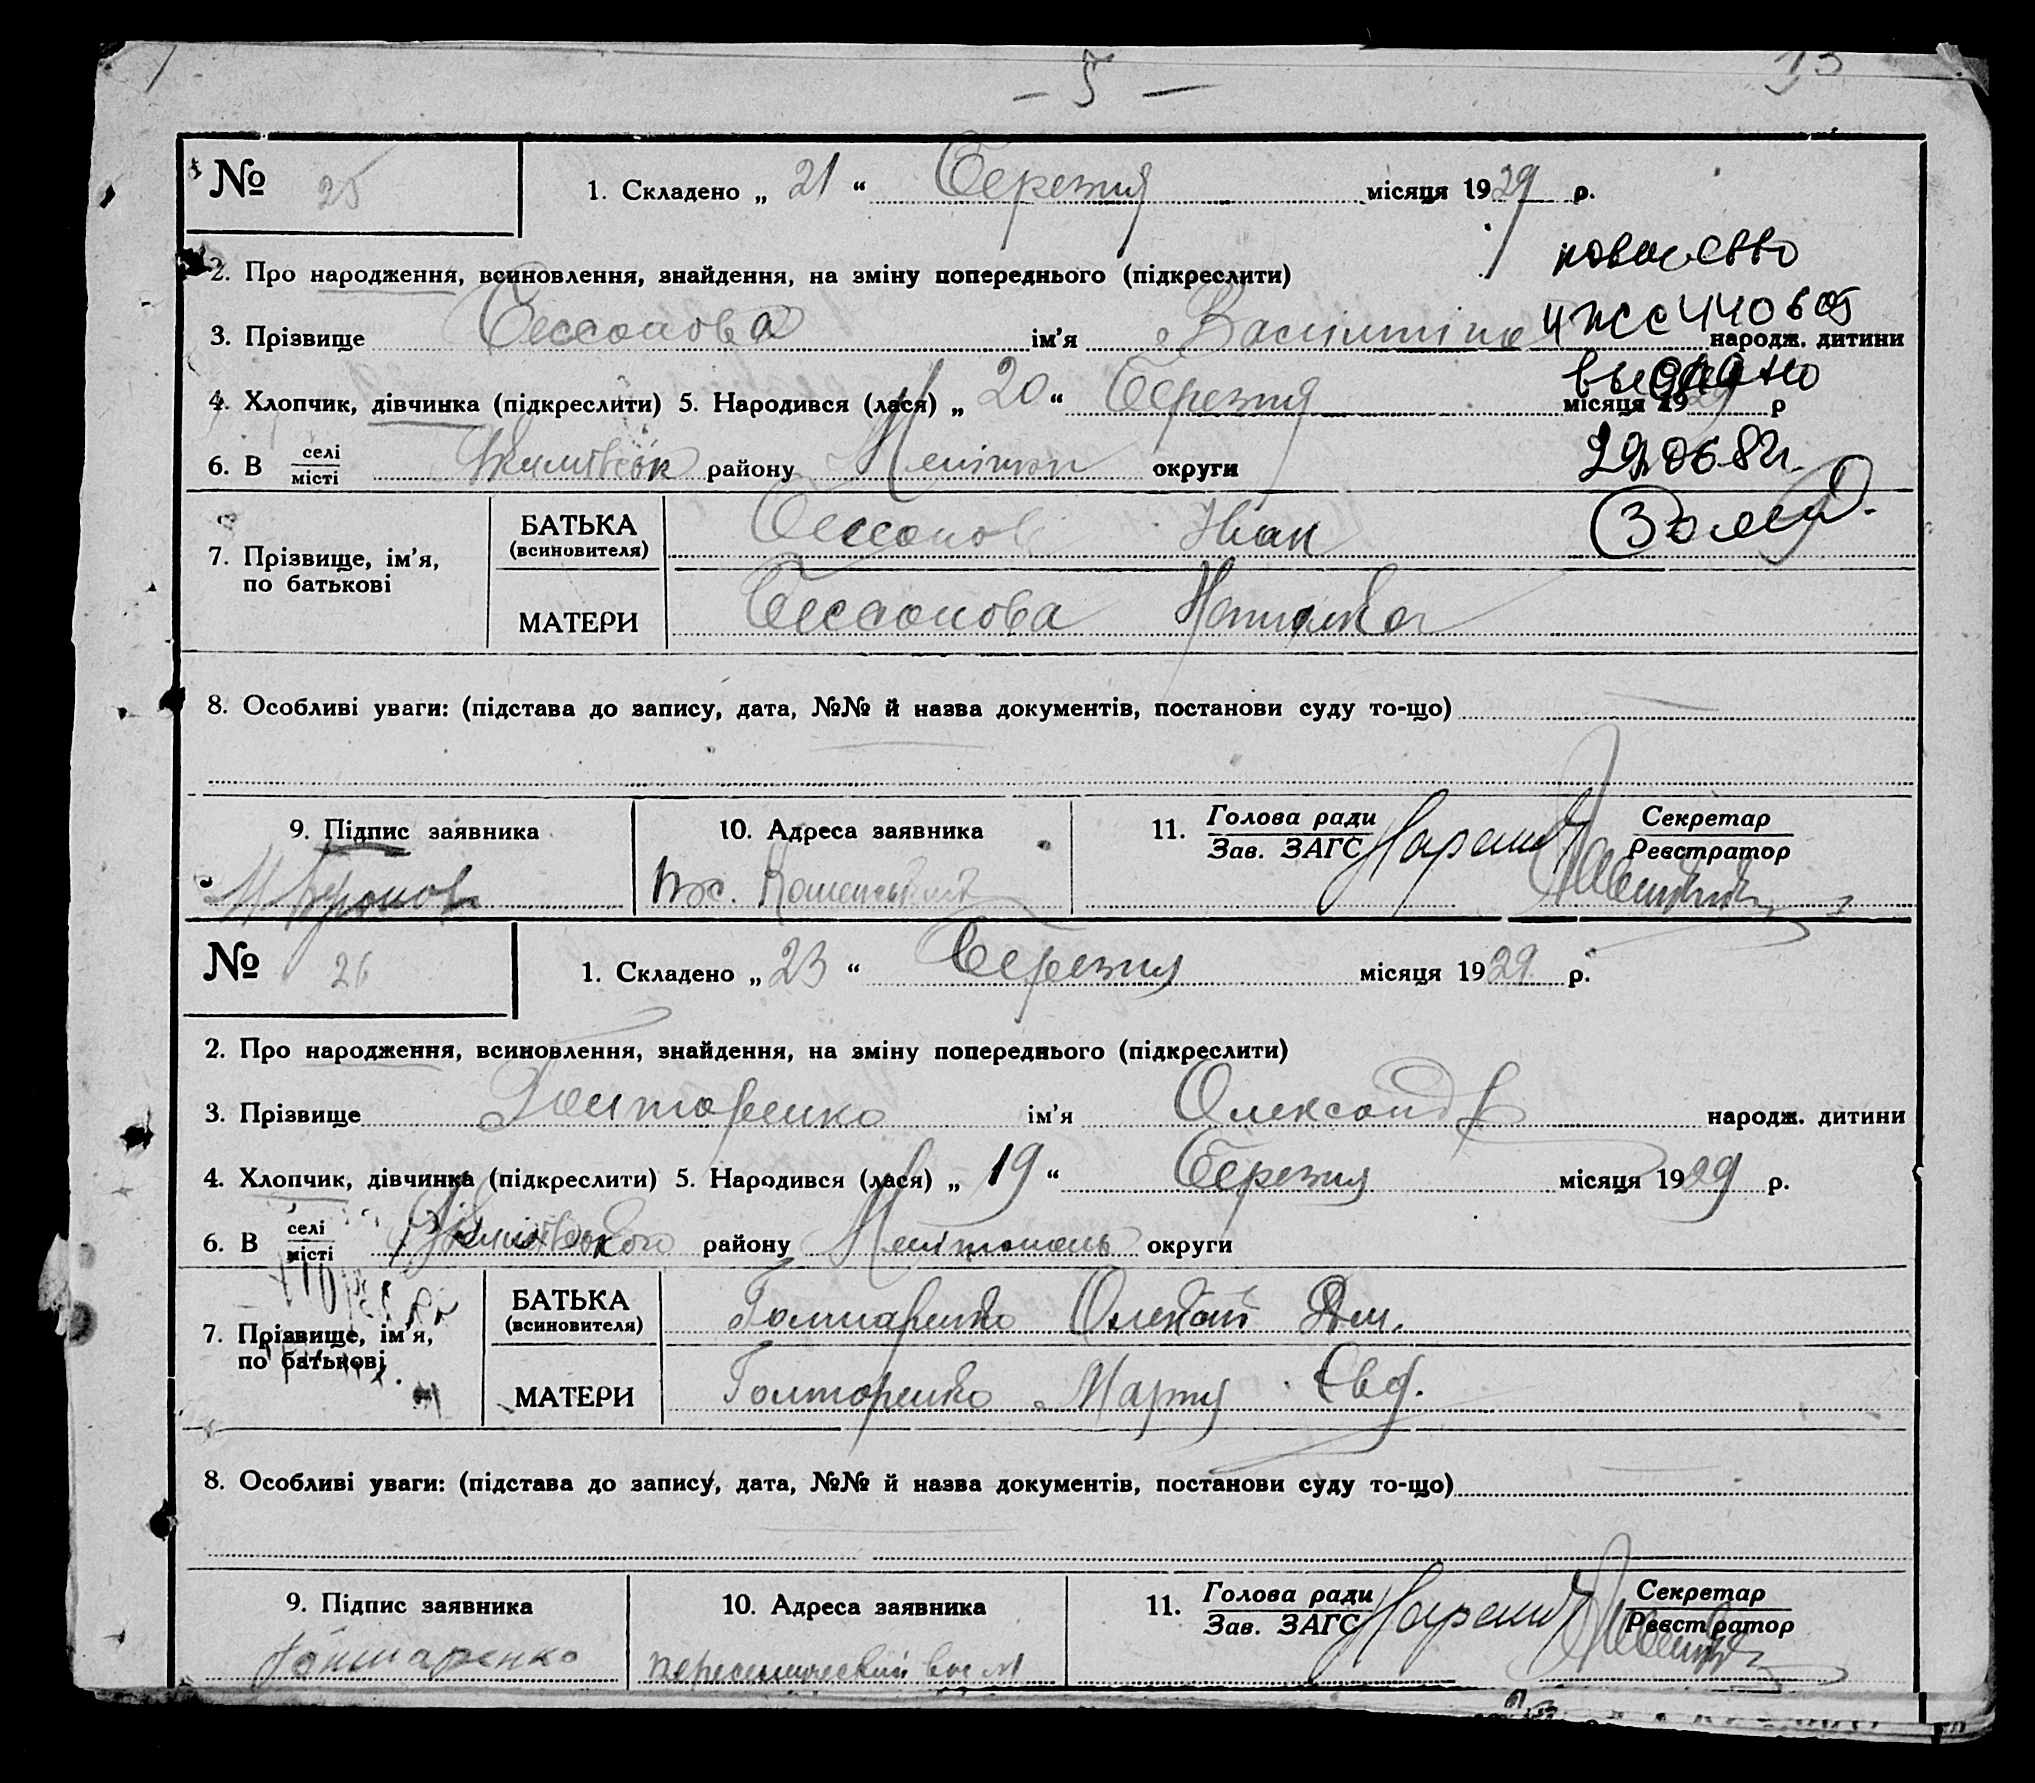 – 5 –
№ 25
1. Складено „ 21 “ Березня місяця 1929 р.
2. Про народження, всиновлення, знайдення, на зміну попереднього (підкреслити)
3. Прізвище Бессонова ім'я народж. дитини
4. Хлопчик, дівчинка (підкреслити) 5. Народився (лася) „ 20 “ Березня місяця 1929 р
6. В селі місті району округи
29.06.82г.
7. Прізвище, ім'я, по батькові
БАТЬКА (всиновителя) Бессонов Іван
МАТЕРИ Бессонова Наталка
8. Особливі уваги: (підстава до запису, дата, №№ й назва документів, постанови суду то-що)
9. Підпис заявника
10. Адреса заявника
11. Голова ради Зав. ЗАГС
Секретар Реєстратор
№ 26
1. Складено „ 23 “ Березня місяця 1929 р.
2. Про народження, всиновлення, знайдення, на зміну попереднього (підкреслити)
3. Прізвище Гончаренко ім'я Олександр народж. дитини
4. Хлопчик, дівчинка (підкреслити) 5. Народився (лася) „ 19 “ Березня місяця 1929 р.
6. В селі місті району округи
7. Прізвище, ім'я, по батькові
БАТЬКА (всиновителя) Гончаренко Олексій
МАТЕРИ Гончаренко Марія Євд.
8. Особливі уваги: (підстава до запису, дата, №№ й назва документів, постанови суду то-що)
9. Підпис заявника
Гончаренко
10. Адреса заявника
11. Голова ради Зав. ЗАГС
Секретар Реєстратор